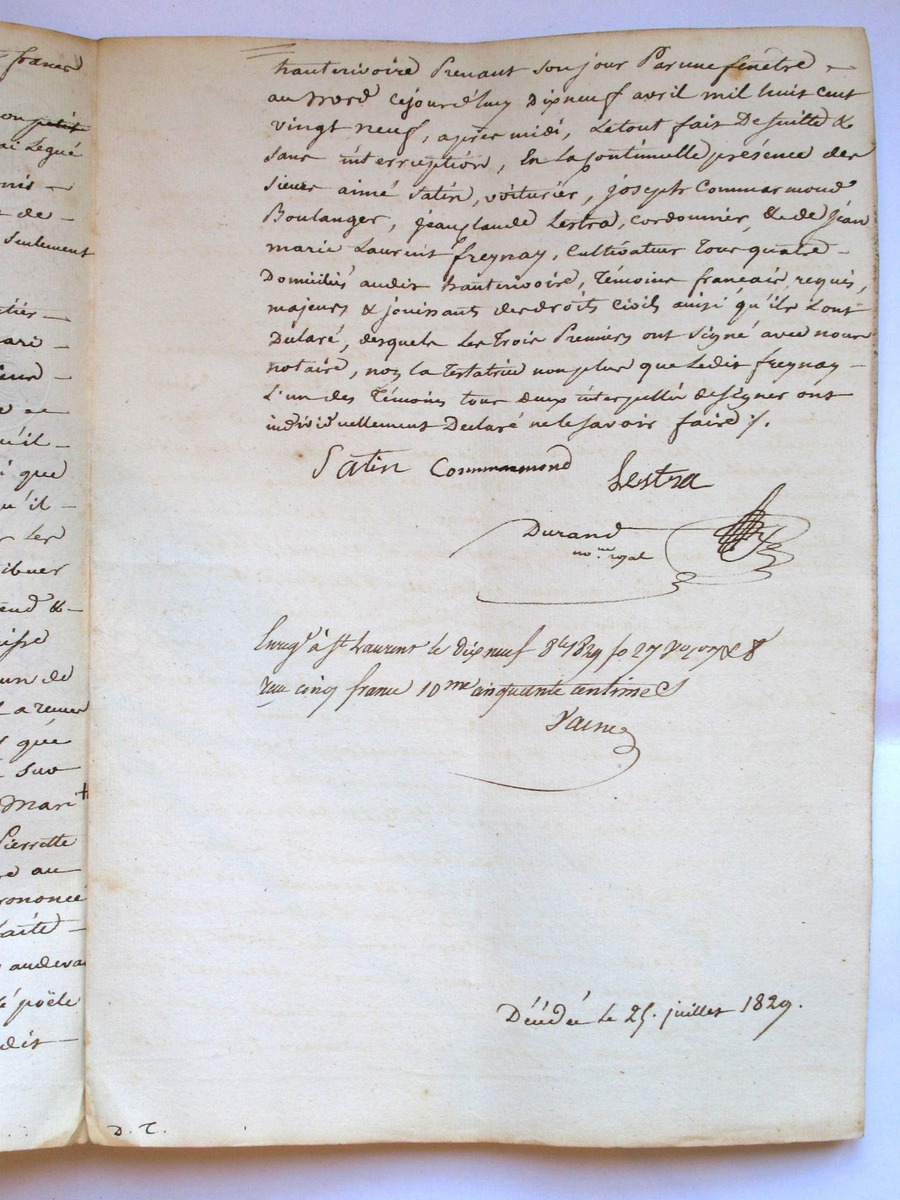 francs
petit
ai Légué
nis -
de -
seulement
ari -
u'il -
i que
u'il -
r Les
ibuer
end & -
un de
a remer
que
sur
Mari
Pierrette
re au
rononcé
faite -
audeva
poële
dit -
hauterivoire Prenant son jour Par une fenêtre -
au Nord Cejourd'huy Dixneuf avril mil huit cent
vingt neuf, après midi, Le tout fait De suitte &
sans interruption, En La Continuelle présence des
sieurs aimé Satin, voiturier, joseph Commarmond
Boulanger, jean claude Lestra, cordonnier, & de jean
marie Laurent freynay, Cultivateur Tous quatre -
Domiciliés audit hauterivoire, Témoins français, requis,
majeurs & jouissants des droits Civils ainsi qu'ils L'ont
Declaré, desquels Les Trois Premiers ont Signé avec nous
notaire, non La Testatrice non plus que Ledit freynay -
L'un des Témoins tous Deux interpellés de signer ont
individuellement Declaré ne le savoir faire /.
Satin Commarmond Lestra
Durand
no.re royal
Enreg.é à St Laurent le dix neuf 1829 fo 27
cinq francs 10me cinquante centimes
Décédée le 25. juillet 1829.
D. T.